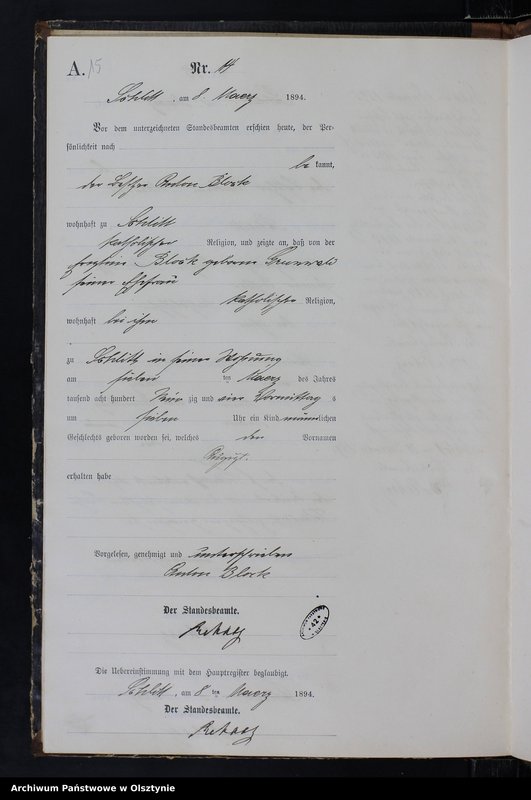 A. 15
Nr. 14
Schlitt, am 8. Maerz 1894.
Vor dem unterzeichneten Standesbeamten erschien heute, der Per-
sönlichkeit nach
be kannt,
der Besitzer Anton Block
wohnhaft zu Schlitt
katholischer Religion, und zeigte an, daß von der
Block geborene Grunwald
seiner Ehefrau
katholischer Religion,
wohnhaft bei ihm
zu Schlitt in seiner Wohnung
am sieben ten Maerz des Jahres
tausend acht hundert neun zig und vier Vormittag s
um sieben Uhr ein Kind männlichen
Geschlechts geboren worden sei, welches den Vornamen
August.
erhalten habe
Vorgelesen, genehmigt und unterschrieben
Anton Block
Der Standesbeamte.
42
Die Uebereinstimmung mit dem Hauptregister beglaubigt.
Schlitt, am 8 ten Maerz 1894.
Der Standesbeamte.
Archiwum Państwowe w Olsztynie